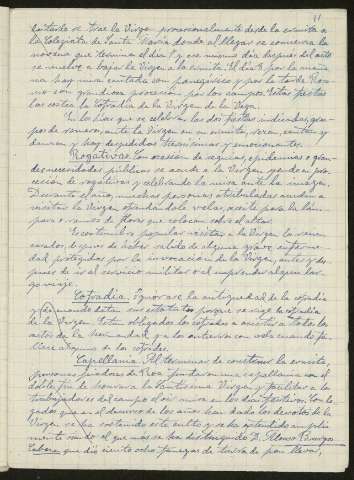 11
se trae la Virgen procesionalmente desde la ermita a
la Colegiata de Santa María donde al llegar se comienza la
novena que termina el día 8 y ese mismo día después del acto
se vuelve a bajar la Virgen a la ermita. El día 8 por la maña-
na hay misa cantada con panegírico y por la tarde Rosa-
rio con grandiosa procesión por los campos. Estas fiestas
las costea la Cofradía de la Virgen de la Vega.
En los días que se celebran las dos fiestas indicadas, gru-
pos de romeros, ante la Virgen en su ermita, rezan, cantan y
danzan y hay despedidas y emocionantes.
Rogativas. Con ocasión de sequías, epidemias o gran-
des necesidades públicas se acude a la Virgen, yendo en pro-
cesión de rogativas y celebrando la misa ante la imagen.
Durante el año, muchas personas atribuladas acuden a
visitar la Virgen ofrendándole velas, aceite para la lám-
para o ramos de flores que colocan sobre el altar.
Es costumbre popular visitar a la Virgen los recién
casados, después de haber salido de alguna grave enferme-
dad protegidos por la invocación de la Virgen, antes y des-
pués de ir al servicio militar o al emprender algún lar-
go viaje.
Cofradía. Ignórase la antigüedad de la cofradía
y de cuando datan sus estatutos porque se rige la cofradía
de la Virgen. Están obligados los cofrades a asistir a todos los
actos de la hermandad y a los entierros con vela cuando fa-
llece alguno de los cofrades.
Capellanía. Al terminar de construir la ermita,
personas piadosas de Roa fundaron una capellanía con el
doble fin de honrar a la Santísima Virgen y facilitar a los
trabajadores del campo el oír misa en los días festivos. Con le-
gados que en el decurso de los años han dado los devotos de la
Virgen se ha sostenido este culto y se ha extendido amplia-
mente siendo el que más se ha distinguido D. Alonso Burgos
que dió ciento ocho fanegas de tierra de pan llevar,